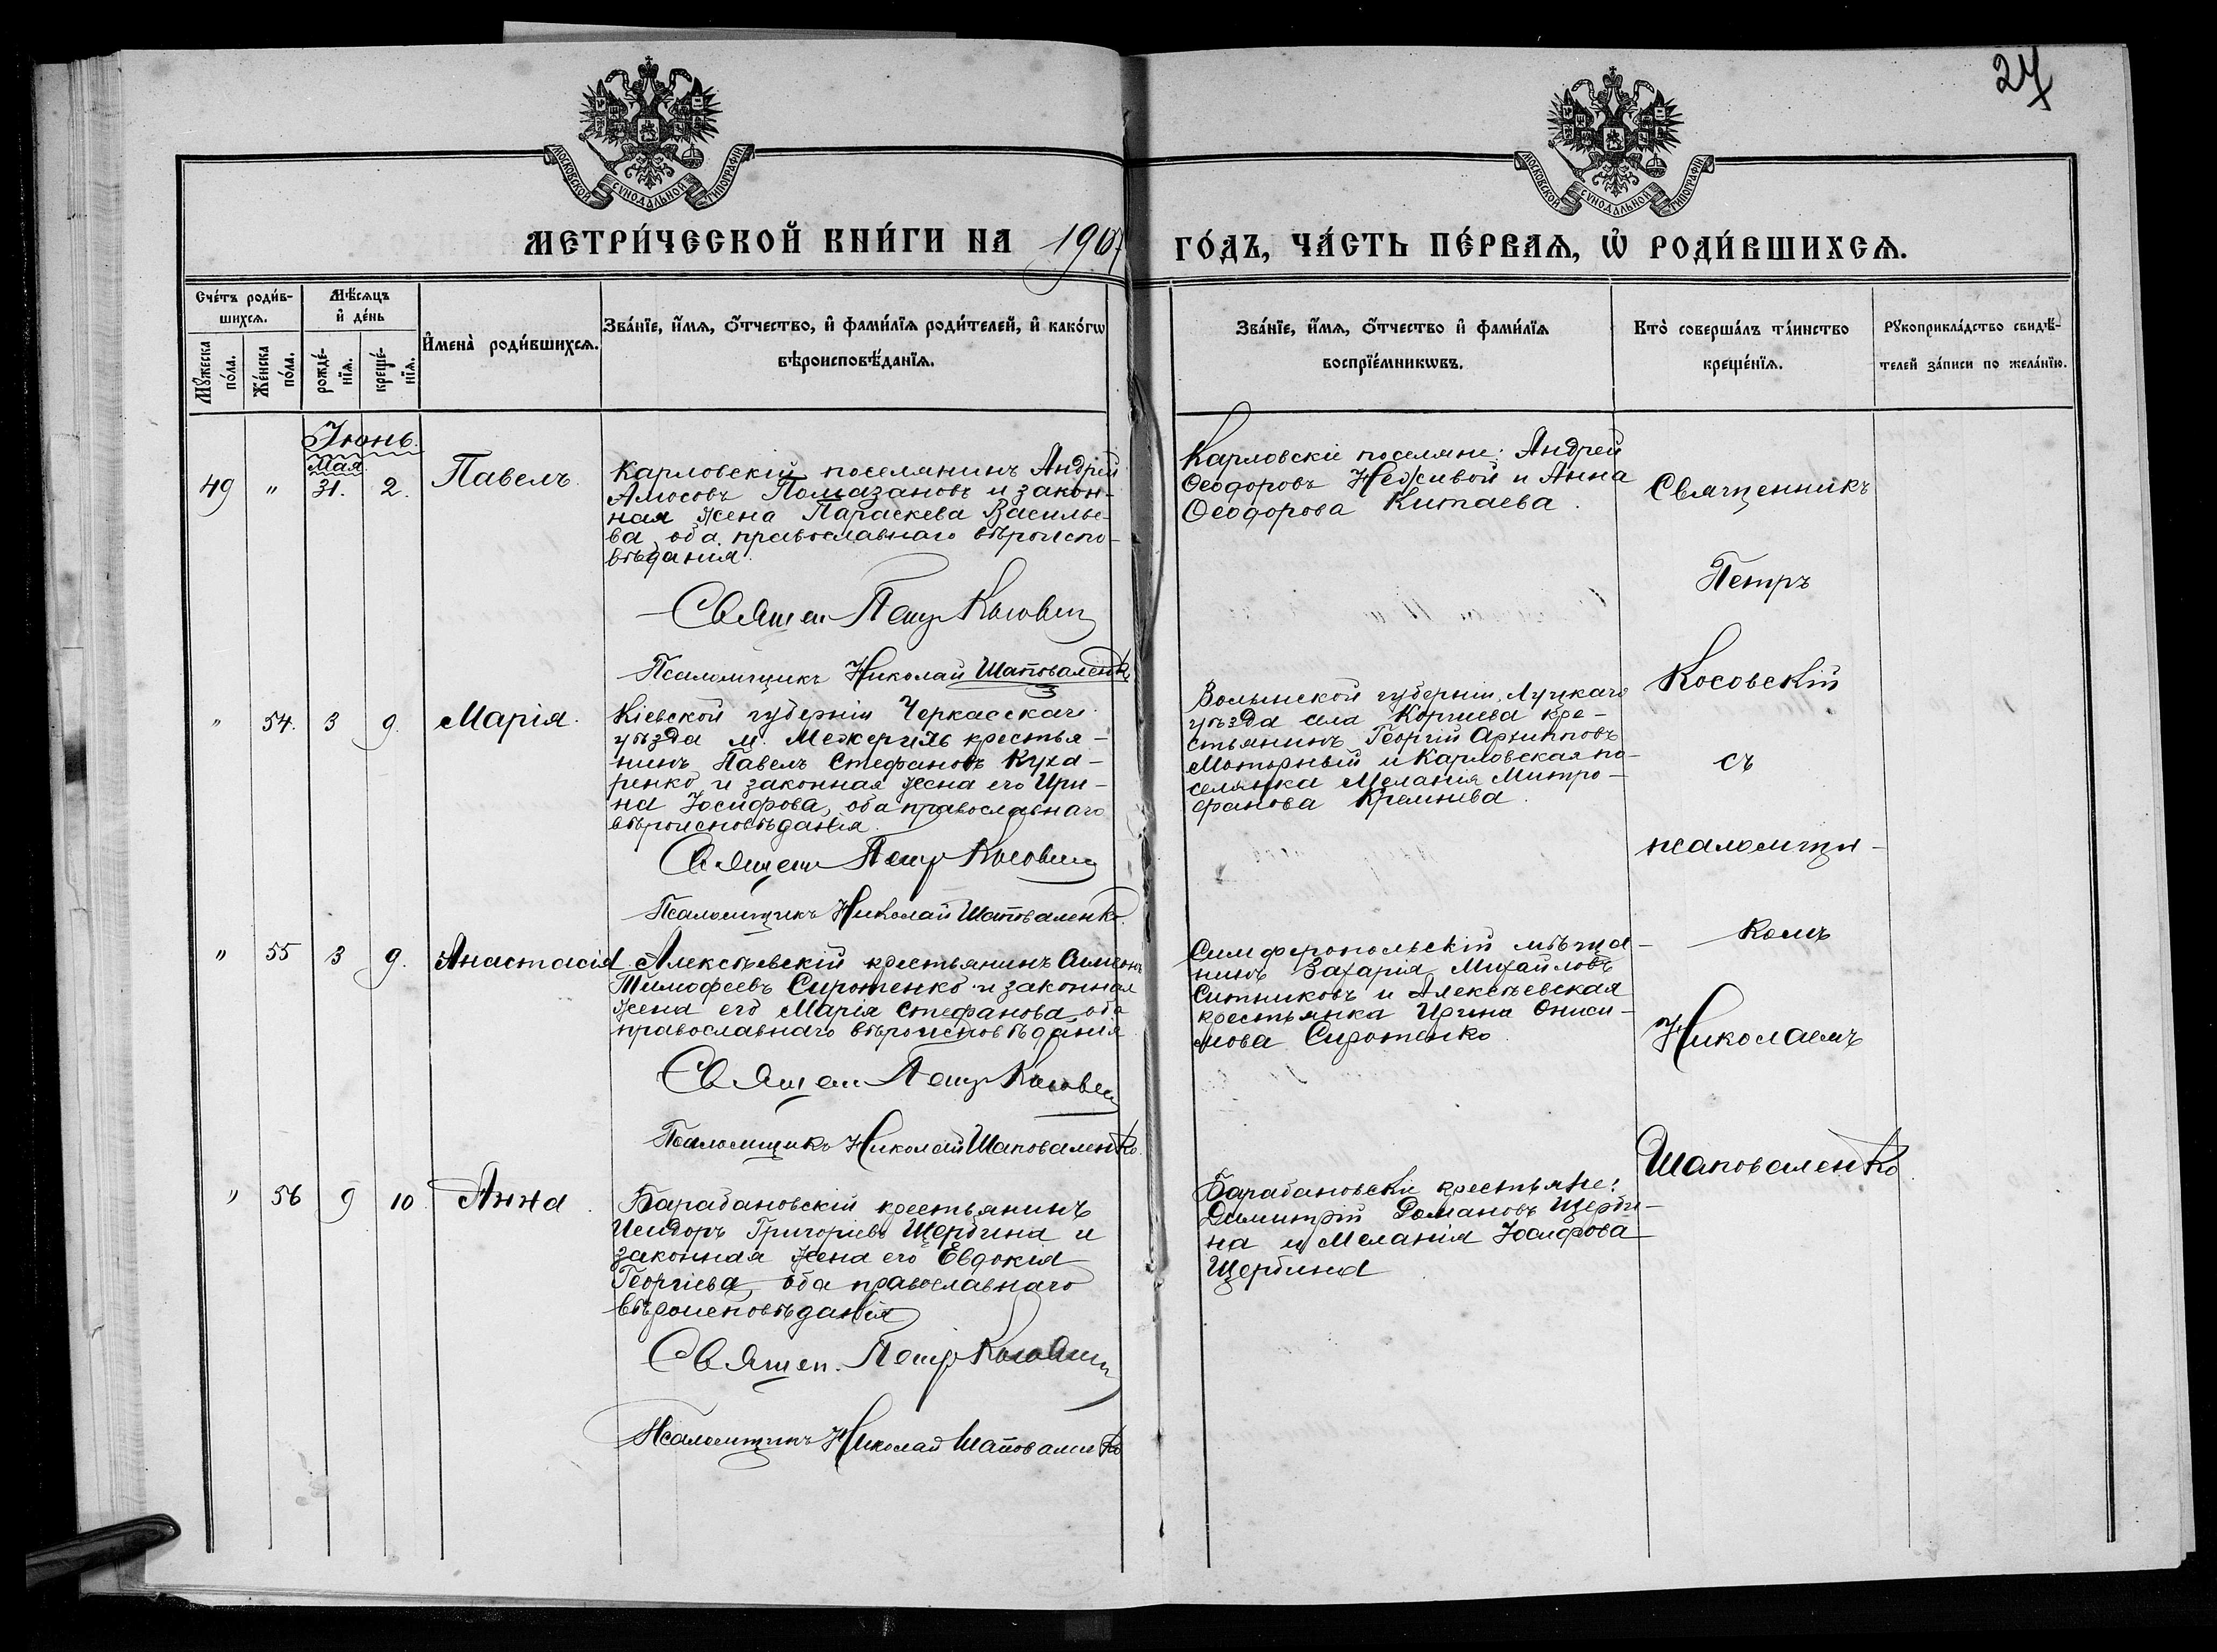 27
МОСКОВСКОЙ СѴНОДАЛЬНОЙ ТИПОГРАФІИ
МОСКОВСКОЙ СѴНОДАЛЬНОЙ ТИПОГРАФІИ
МЕТРИ́ЧЕСКОЙ КНИ́ГИ НА 1907
ГО́ДЪ, ЧА́СТЬ ПЕ́РВАѦ, Ѡ҆ РОДИ́ВШИХСѦ.
Сче́тъ роди́в-
шихсѧ.
Мꙋ́жеска
по́ла.
Же́нска
по́ла.
Мѣ́сѧцъ
и҆ де́нь
рожде́-
нїѧ.
креще́-
нїѧ.
И҆мена̀ роди́вшихсѧ.
Зва́нїе, и҆́мѧ, ѻ҆́тчество, и҆ фами́лїѧ роди́телей, и҆ како́гѡ
вѣроисповѣ́данїѧ.
Зва́нїе, и҆́мѧ, ѻ҆́тчество и҆ фами́лїѧ
воспрїе́мникѡвъ.
Кто̀ соверша́лъ та́инство
креще́нїѧ.
Рꙋкоприкла́дство свидѣ́-
телей за́писи по жела́нїю.
Іюнь.
Мая
49 " 31. 2. Павелъ.
Карловскій поселянинъ Андрей
Амосовъ Помазановъ и закон-
ная жена Параскева Василье-
ва, оба православнаго вѣроиспо-
вѣданія.
Священ Петр Косовскій
Псаломщикъ Николай Шаповаленко
Карловскіе поселяне: Андрей
Ѳеодоровъ Неживой и Анна
Ѳеодорова Китаева.
Священникъ
Петръ
Косовскій
съ
псаломщи-
комъ
Николаемъ
Шаповаленко
" 54. 3 9. Марія.
Кіевской губерніи Черкасскаго
уѣзда м. Межеричъ крестья-
нинъ Павелъ Стефановъ Куха-
ренко и законная жена его Ири-
на Іосифова, оба православнаго
вѣроисповѣданія.
Священ Петр Косовскій
Псаломщикъ Николай Шаповаленко.
Волынской губерніи, Луцкаго
уѣзда села Коршева кре-
стьянинъ Георгій Архипповъ
Моторный и Карловская по-
селянка Меланія Митро-
фанова Кремнева.
" 55 3 9. Анастасія.
Алексѣевскій крестьянинъ Симеонъ
Тимофеевъ Сиротенко и законная
жена его Марія Стефанова, оба
православнаго вѣроисповѣданія
Священ Петр Косовскій
Псаломщикъ Николай Шаповаленко.
Симферопольскій мѣща-
нинъ Захарія Михайловъ
Ситниковъ и Алексѣевская
крестьянка Ирина Ониси-
мова Сиротенко.
" 56 9 10 Анна.
Барабановскій крестьянинъ
Исидоръ Григоріевъ Щербина и
законная жена его Евдокія
Георгіева, оба православнаго
вѣроисповѣданія
Священ. Петр Косовскій
Псаломщикъ Николай Шаповаленко
Барабановскіе крестьяне:
Димитрій Романовъ Щерби-
на и Меланія Іосифова
Щербина